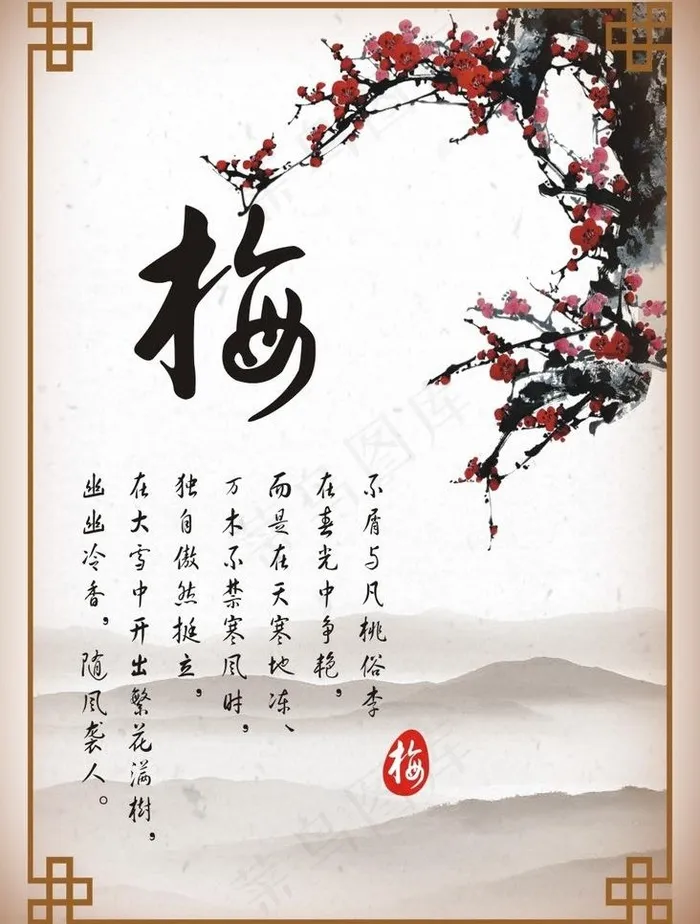 梅
不屑与凡桃俗李
在春光中争艳，
而是在天寒地冻、
万木不禁寒风时，
独自傲然挺立，
在大雪中开出繁花满樹，
幽幽冷香，随风袭人。
梅
菜鸟图库